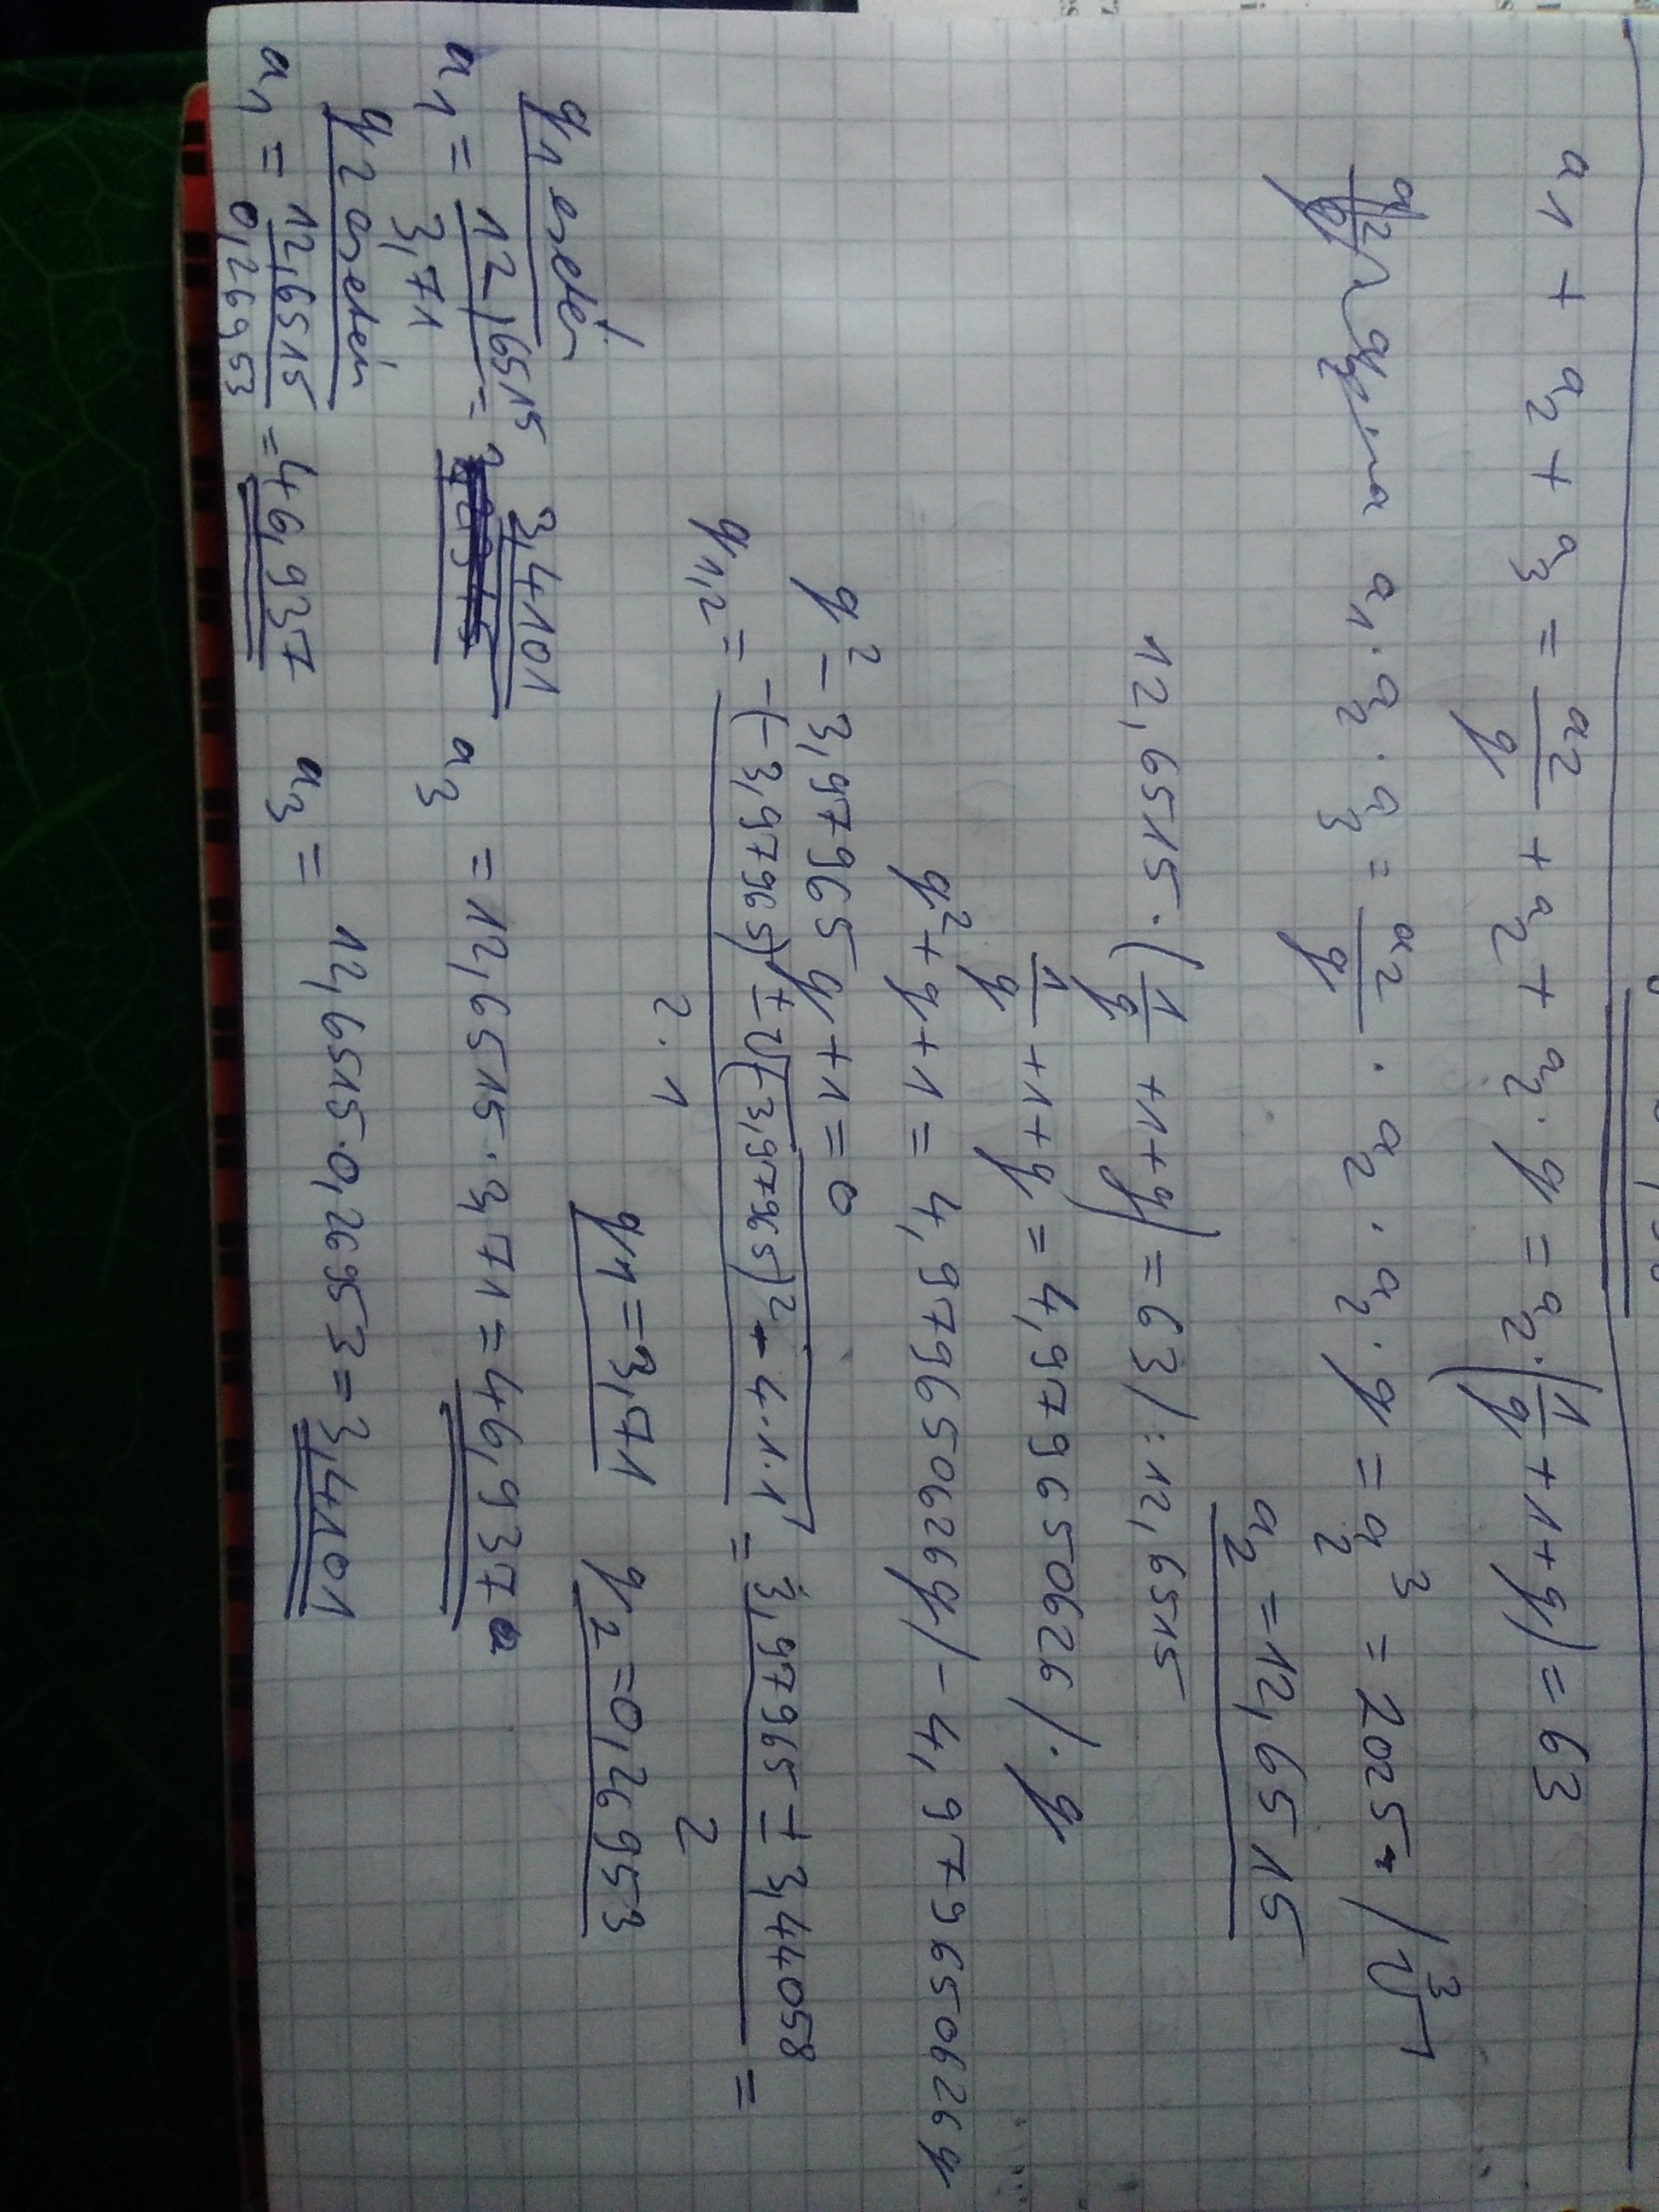 a1 + a2 + a3 = a2/q + a2 + a2·q = a2·(1/q + 1 + q) = 63
a1·a2·a3 = a2/q · a2 · a2·q = a2³ = 2025 /∛
a2 = 12,6515
12,6515·(1/q + 1 + q) = 63 /:12,6515
1/q + 1 + q = 4,979650626 /·q
q² + q + 1 = 4,979650626q /- 4,979650626q
q² - 3,97965q + 1 = 0
q1,2 = (-(-3,97965) ± √((-3,97965)² - 4·1·1)) / (2·1) = (3,97965 ± 3,44058) / 2 =
q1 = 3,71 q2 = 0,26953
q1 esetén
a1 = 12,6515/3,71 = 3,4101 a3 = 12,6515·3,71 = 46,937
q2 esetén
a1 = 12,6515/0,26953 = 46,937 a3 = 12,6515·0,26953 = 3,4101